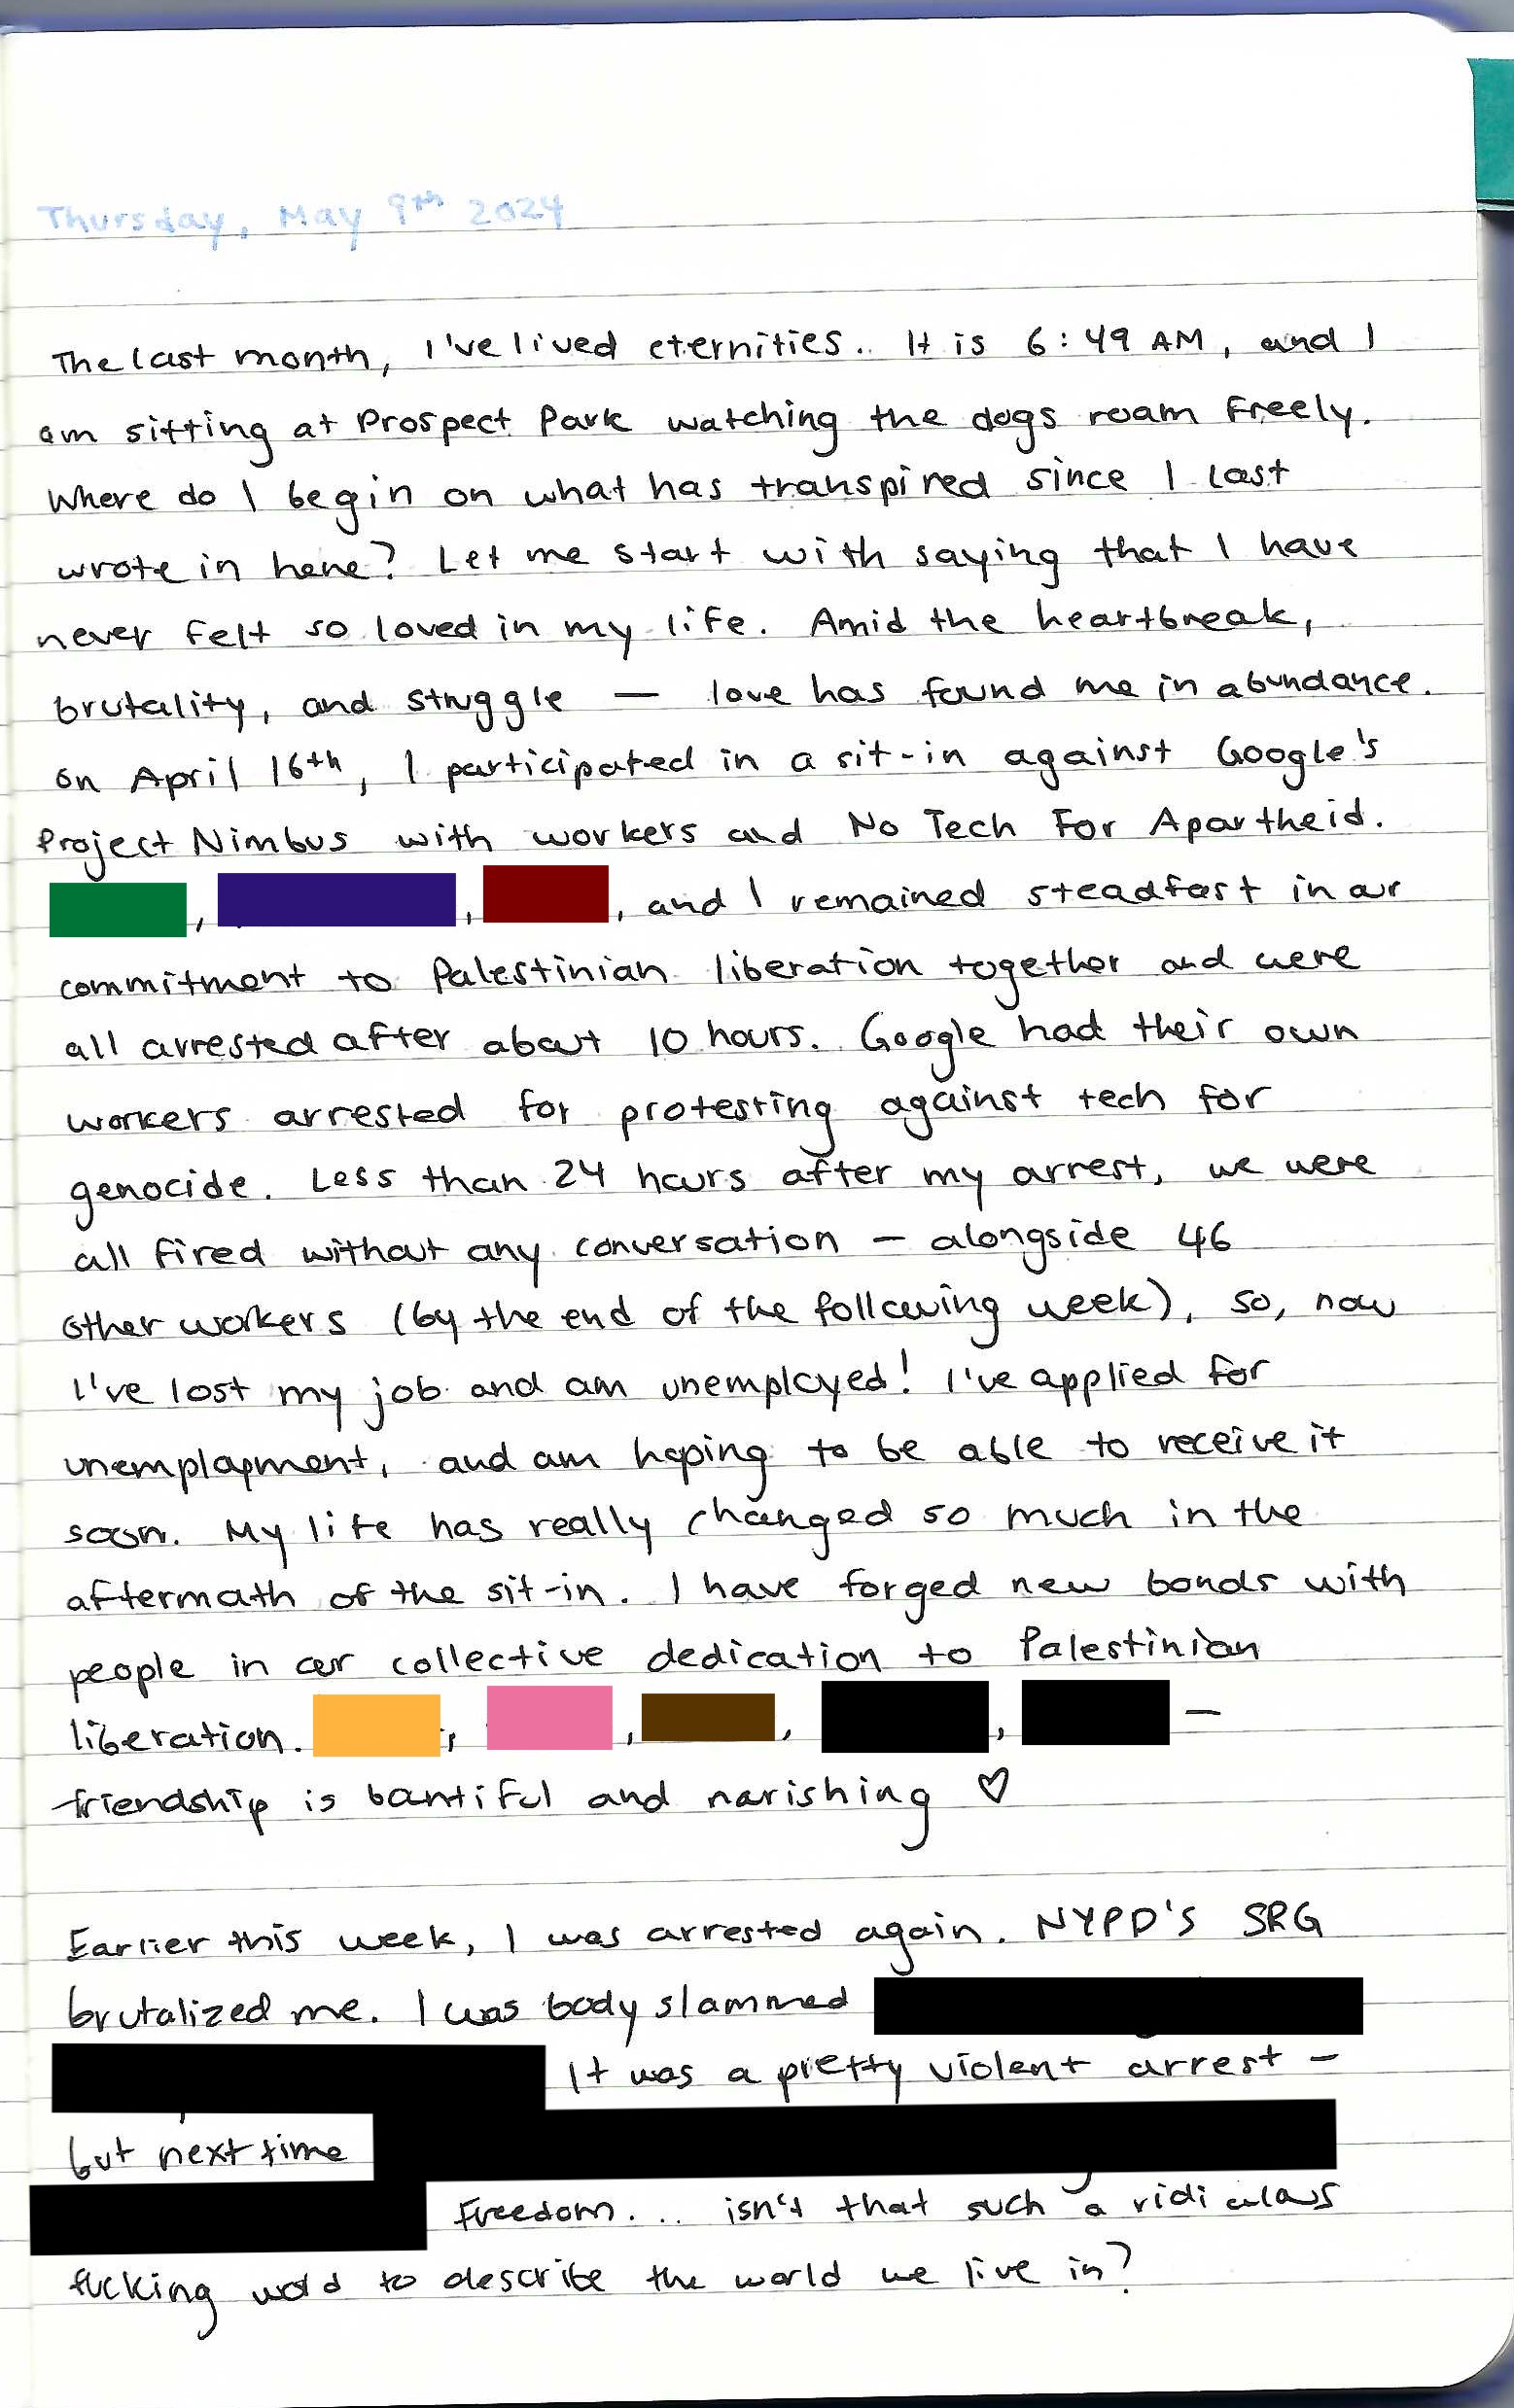 Thursday, May 9th 2024
The last month, I've lived eternities.. It is 6:49 AM, and I
am sitting at Prospect Park watching the dogs roam freely.
Where do I begin on what has transpired since I last
wrote in here? Let me start with saying that I have
never felt so loved in my life. Amid the heartbreak,
brutality, and struggle — love has found me in abundance.
On April 16th, I participated in a sit-in against Google's
Project Nimbus with workers and No Tech For Apartheid.
, , , and I remained steadfast in our
commitment to Palestinian liberation together and were
all arrested after about 10 hours. Google had their own
workers arrested for protesting against tech for
genocide. Less than 24 hours after my arrest, we were
all fired without any conversation — alongside 46
other workers (by the end of the following week), so, now
I've lost my job and am unemployed! I've applied for
unemployment, and am hoping to be able to receive it
soon. My life has really changed so much in the
aftermath of the sit-in. I have forged new bonds with
people in our collective dedication to Palestinian
liberation. , , , , —
friendship is bountiful and nourishing ♡
Earlier this week, I was arrested again. NYPD'S SRG
brutalized me. I was body slammed
It was a pretty violent arrest —
but next time
Freedom... isn't that such a ridiculous
fucking word to describe the world we live in?